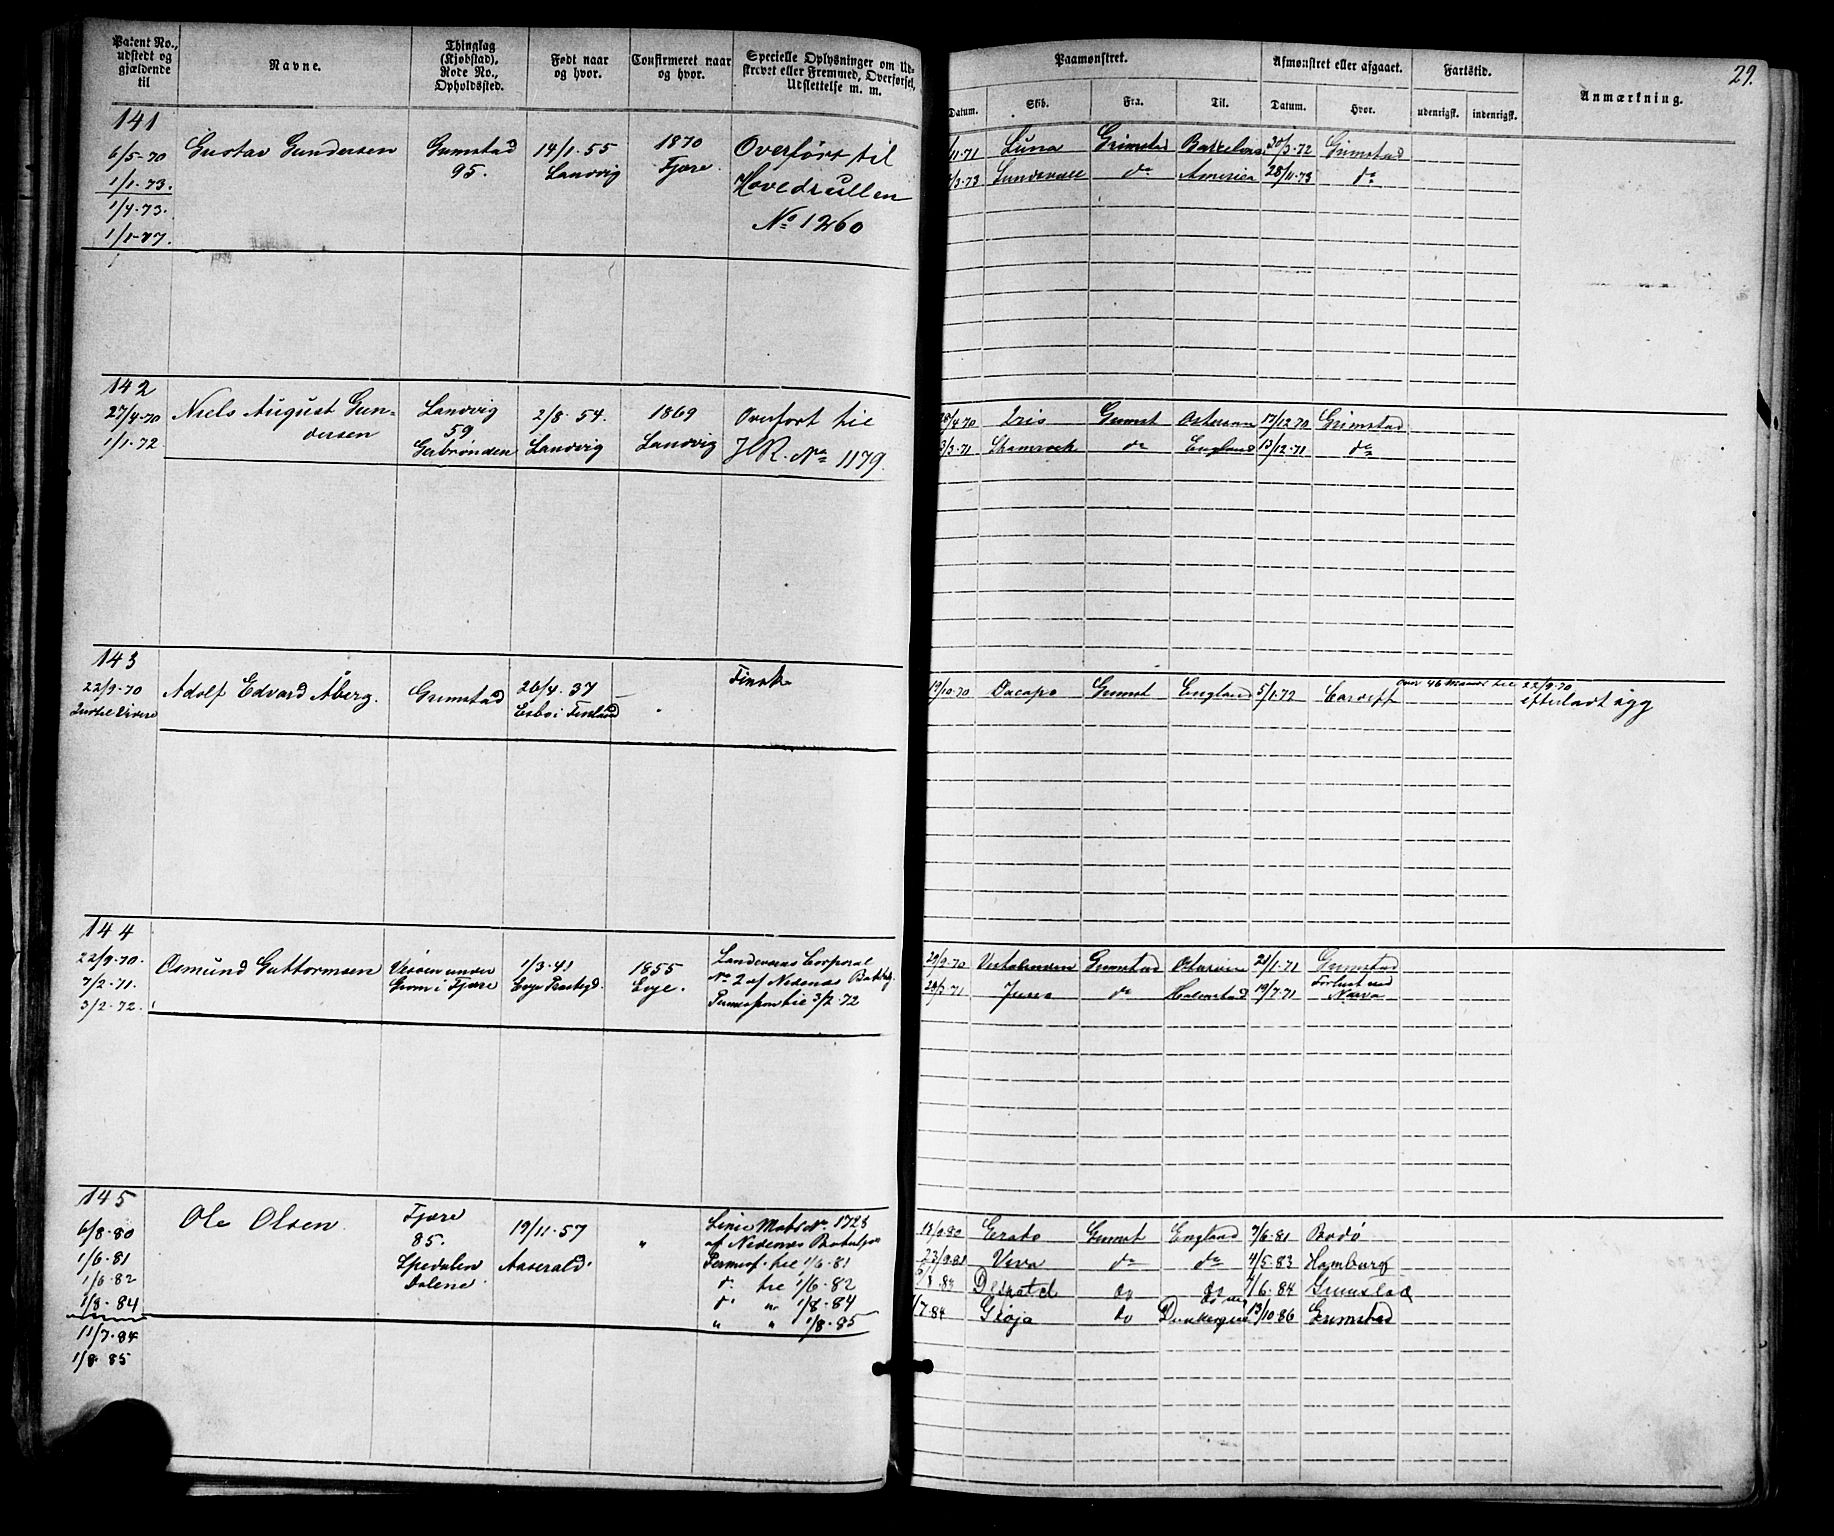 Patent No., udstedt og gjældende til
Navne.
Thinglag (Kjøbstad), Rode No., Opholdssted.
Født naar og hvor.
Confirmeret naar og hvor.
Specielle Oplysninger om Udskrevet eller Fremmed, Overførsel, Udslettelse m. m.
Paamønstret.
Afmønstret eller afgaaet.
Fartstid.
Anmærkning.
29.
Datum.
Skib.
Fra.
Til.
Datum.
Hvor.
udenrigsk.
indenrigsk.
141
6/5-70
1/1-73.
1/4-73.
1/1-77.
Gustav Gundersen
Grimstad
95.
14/1.55
Landvig
1870
Fjære.
Overført til
Hovedrullen
No 1260
11-71 Luna Grimstad 30/3-72 Grimstad
3-73 do America 28/11-73 do
142
27/4-70
1/1-72
Niels August Gun-
dersen
Landvig
59
Gjerbrønden
2/8-54.
Landvig
1869
Landvig
Overført til
HR. No 1179.
28/4-70 Iris Grimst 17/12-70 Grimstad
3/3-71 Shamrock do England 13/12-71 do
143
22/9-70
Adolf Edvard Åberg.
Grimstad
26/4.37
Esbo i Finland
Finsk
19/10-70 Dacapo Grimst England 5/1-72 Cardiff over 46 Maaneder til 22/9-70
efterladt syg
144
22/9-70.
7/2-71.
3/2-72.
Osmund Guttormsen
Vessøen under
Grom i Fjære
1/3-41
Evje Præstegd
1855
Evje.
Landeværns Corporal
No 2 af Nedenæs Batlg
Permission til 3/2-72
29/9-70 Grimstad 21/1-71 Grimstad
28/3-71 Juno do Halmstad 19/7-71 Forlist ved
Narva
145
6/8-80
1/6-81
1/6-82
1/8-84
11/7-84
1/8-85
Ole Olsen
Fjære
85.
Spedalen
Dalene
19/11-57
Aaserald.
"
Linie Mats No. 1723
af Nedenæs Bataljon
Permis. til 1/6-81
do til 1/6-82
do " 1/8-84
" " 1/8-85
13/9-80 Erato Grimst England 7/6-81 Bodø
23/9-81 Viva do do 4/5-83 Hamburg
/8-83 do do 7/6-84 Grimstad
/7-84 Gioja do 13/10-86 Grimstad